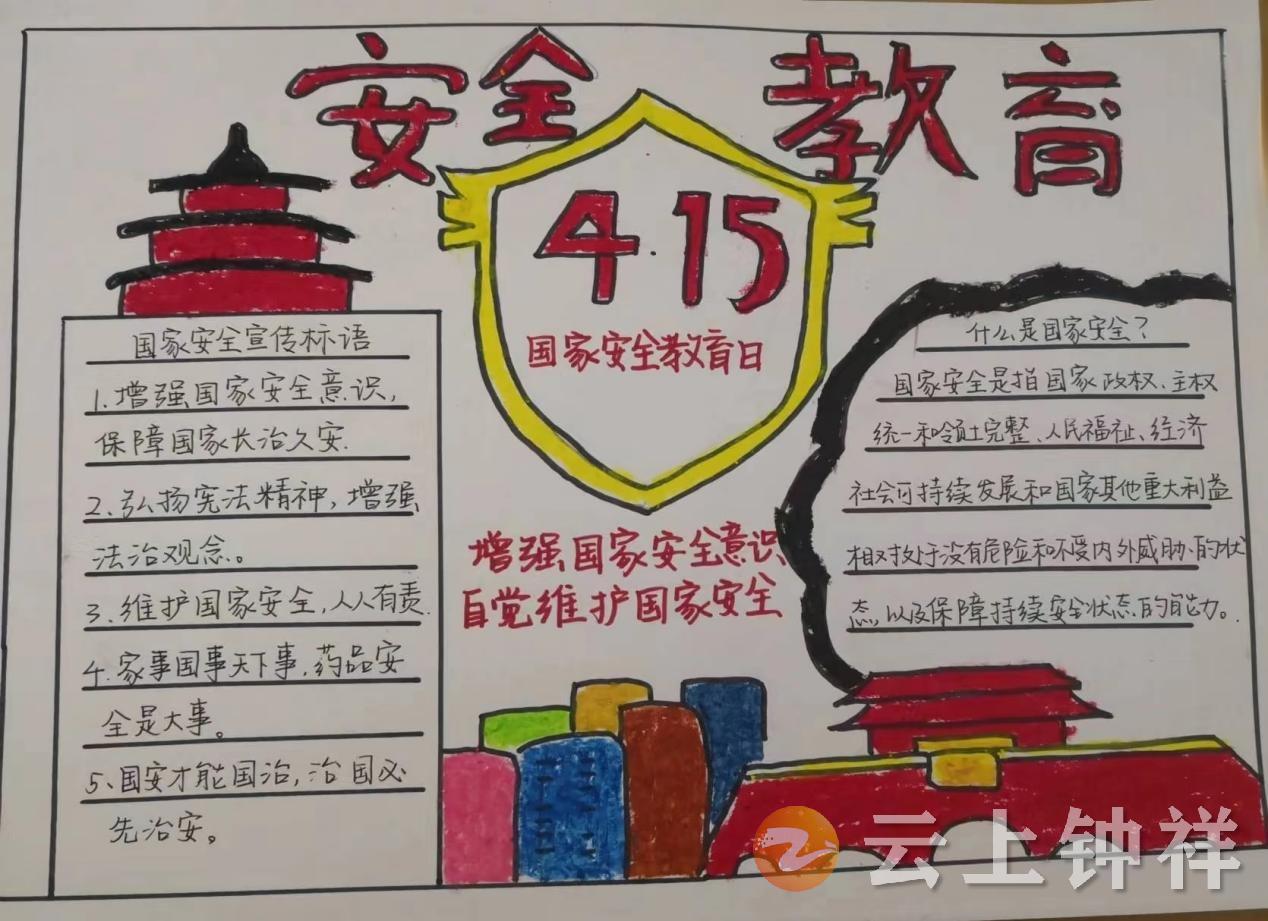 安全教育
4.15
国家安全教育日
增强国家安全意识
自觉维护国家安全
国家安全宣传标语
1.增强国家安全意识,
保障国家长治久安.
2.弘扬宪法精神,增强
法治观念。
3.维护国家安全,人人有责.
4.家事国事天下事,药品安
全是大事。
5、国安才能国治,治国必
先治安。
什么是国家安全?
国家安全是指国家政权、主权
统一和领土完整、人民福祉、经济
社会可持续发展和国家其他重大利益
相对处于没有危险和不受内外威胁的状
态,以及保障持续安全状态的能力。
云上钟祥